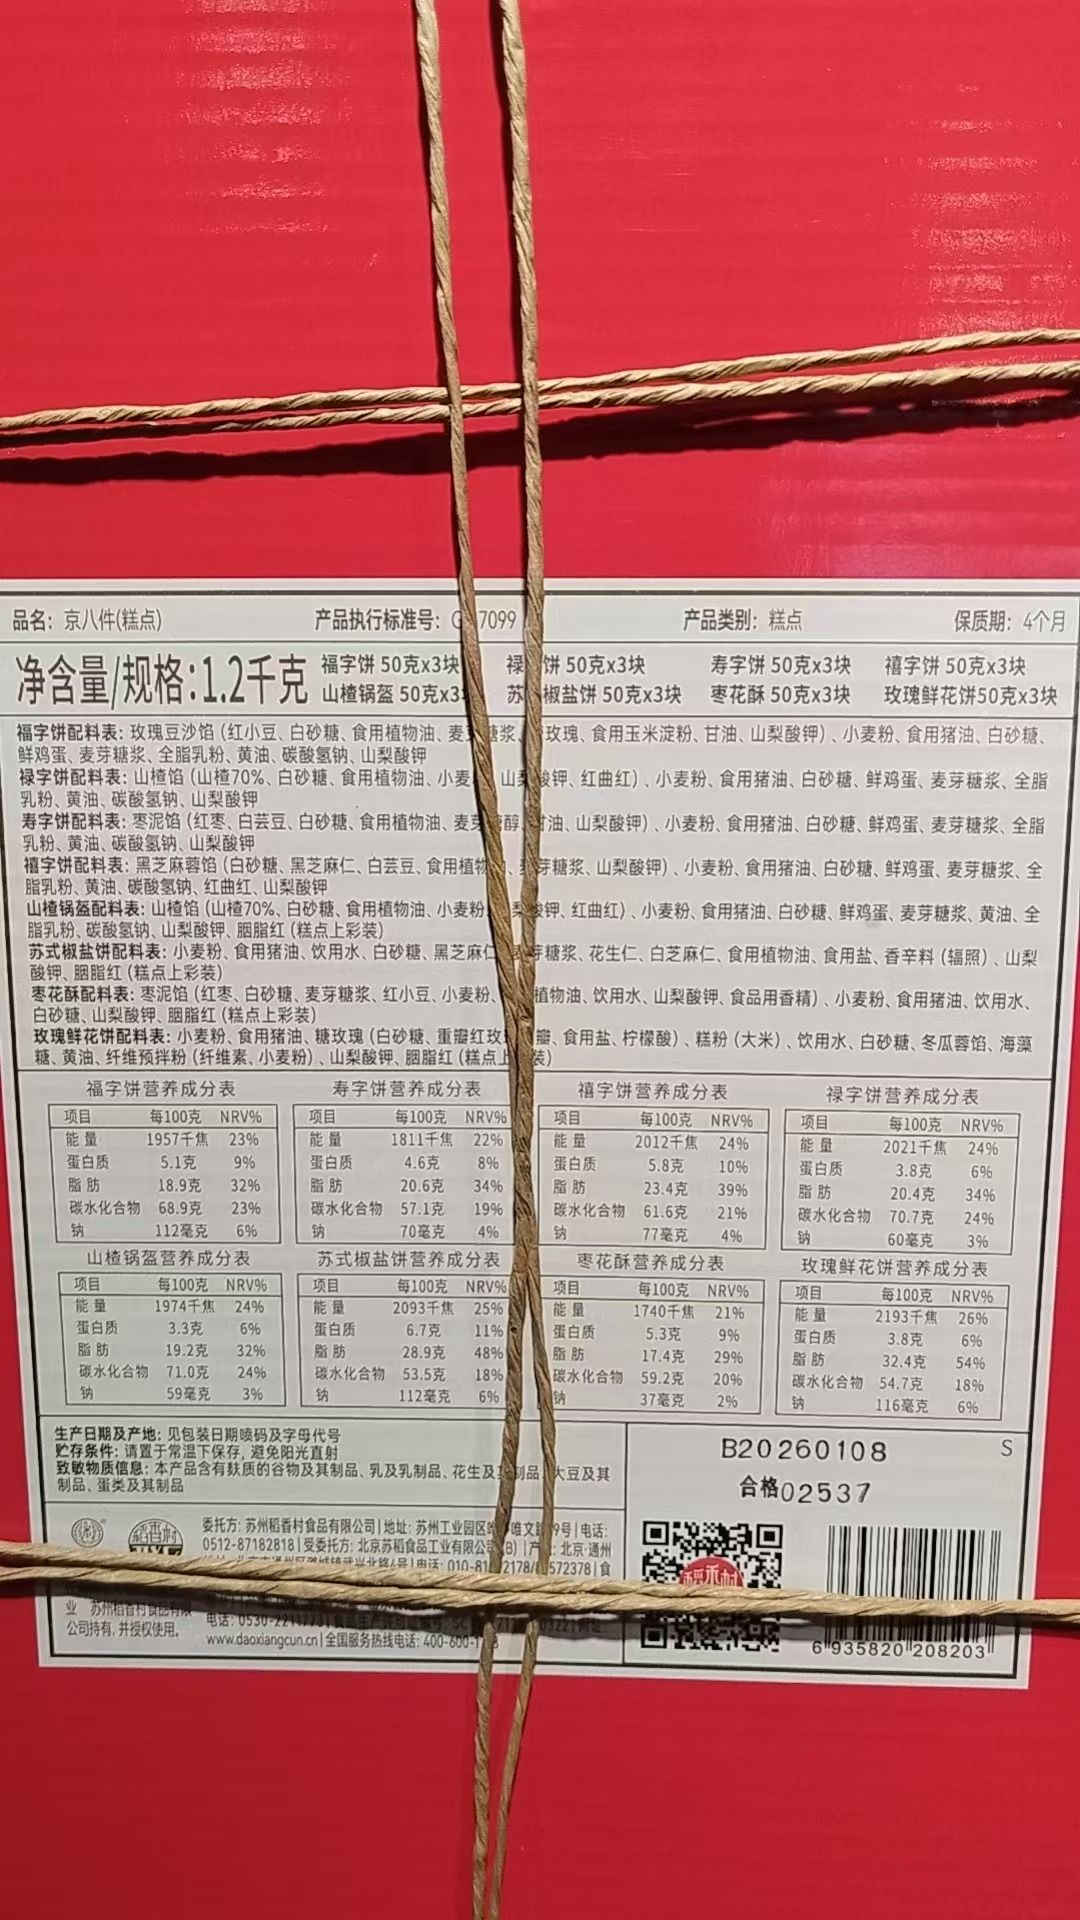 品名: 京八件(糕点) 产品执行标准号: G 7099 产品类别: 糕点 保质期: 4个月
净含量/规格:1.2千克
福字饼 50克x3块 禄 饼 50克x3块 寿字饼 50克x3块 禧字饼 50克x3块
山楂锅盔 50克x3 苏 椒盐饼 50克x3块 枣花酥 50克x3块 玫瑰鲜花饼50克x3块
福字饼配料表: 玫瑰豆沙馅 (红小豆、白砂糖、食用植物油、麦 糖浆、 玫瑰、食用玉米淀粉、甘油、山梨酸钾) 、小麦粉、食用猪油、白砂糖、
鲜鸡蛋、麦芽糖浆、全脂乳粉、黄油、碳酸氢钠、山梨酸钾
禄字饼配料表: 山楂馅 (山楂70%、白砂糖、食用植物油、小麦 、山 酸钾、红曲红) 、小麦粉、食用猪油、白砂糖、鲜鸡蛋、麦芽糖浆、全脂
乳粉、黄油、碳酸氢钠、山梨酸钾
寿字饼配料表: 枣泥馅 (红枣、白芸豆、白砂糖、食用植物油、麦芽 醇、 油、山梨酸钾) 、小麦粉、食用猪油、白砂糖、鲜鸡蛋、麦芽糖浆、全脂
乳粉、黄油、碳酸氢钠、山梨酸钾
禧字饼配料表: 黑芝麻蓉馅 (白砂糖、黑芝麻仁、白芸豆、食用植物 、 芽糖浆、山梨酸钾) 、小麦粉、食用猪油、白砂糖、鲜鸡蛋、麦芽糖浆、全
脂乳粉、黄油、碳酸氢钠、红曲红、山梨酸钾
山楂锅盔配料表: 山楂馅 (山楂70%、白砂糖、食用植物油、小麦粉 梨酸钾、红曲红) 、小麦粉、食用猪油、白砂糖、鲜鸡蛋、麦芽糖浆、黄油、全
脂乳粉、碳酸氢钠、山梨酸钾、胭脂红 (糕点上彩装)
苏式椒盐饼配料表: 小麦粉、食用猪油、饮用水、白砂糖、黑芝麻仁 芽糖浆、花生仁、白芝麻仁、食用植物油、食用盐、香辛料 (辐照) 、山梨
酸钾、胭脂红 (糕点上彩装)
枣花酥配料表: 枣泥馅 (红枣、白砂糖、麦芽糖浆、红小豆、小麦粉、 植物油、饮用水、山梨酸钾、食品用香精) 、小麦粉、食用猪油、饮用水、
白砂糖、山梨酸钾、胭脂红 (糕点上彩装)
玫瑰鲜花饼配料表: 小麦粉、食用猪油、糖玫瑰 (白砂糖、重瓣红玫 瓣、食用盐、柠檬酸) 、糕粉 (大米) 、饮用水、白砂糖、冬瓜蓉馅、海藻
糖、黄油、纤维预拌粉 (纤维素、小麦粉) 、山梨酸钾、胭脂红 (糕点上 装)
福字饼营养成分表
项目 每100克 NRV%
能 量 1957千焦 23%
蛋白质 5.1克 9%
脂 肪 18.9克 32%
碳水化合物 68.9克 23%
钠 112毫克 6%
寿字饼营养成分表
项目 每100克 NRV%
能 量 1811千焦 22%
蛋白质 4.6克 8%
脂 肪 20.6克 34%
碳水化合物 57.1克 19%
钠 70毫克 4%
禧字饼营养成分表
项目 每100克 NRV%
能 量 2012千焦 24%
蛋白质 5.8克 10%
脂 肪 23.4克 39%
碳水化合物 61.6克 21%
钠 77毫克 4%
禄字饼营养成分表
项目 每100克 NRV%
能 量 2021千焦 24%
蛋白质 3.8克 6%
脂 肪 20.4克 34%
碳水化合物 70.7克 24%
钠 60毫克 3%
山楂锅盔营养成分表
项目 每100克 NRV%
能 量 1974千焦 24%
蛋白质 3.3克 6%
脂 肪 19.2克 32%
碳水化合物 71.0克 24%
钠 59毫克 3%
苏式椒盐饼营养成分表
项目 每100克 NRV%
能 量 2093千焦 25%
蛋白质 6.7克 11%
脂 肪 28.9克 48%
碳水化合物 53.5克 18%
钠 112毫克 6%
枣花酥营养成分表
项目 每100克 NRV%
能 量 1740千焦 21%
蛋白质 5.3克 9%
脂 肪 17.4克 29%
碳水化合物 59.2克 20%
钠 37毫克 2%
玫瑰鲜花饼营养成分表
项目 每100克 NRV%
能 量 2193千焦 26%
蛋白质 3.8克 6%
脂 肪 32.4克 54%
碳水化合物 54.7克 18%
钠 116毫克 6%
生产日期及产地: 见包装日期喷码及字母代号
贮存条件: 请置于常温下保存, 避免阳光直射
致敏物质信息: 本产品含有麸质的谷物及其制品、乳及乳制品、花生及 制品、大豆及其
制品、蛋类及其制品
B20260108 S
合格02537
稻香村
委托方: 苏州稻香村食品有限公司 | 地址: 苏州工业园区 唯文路 9号 | 电话:
0512-87182818 | 受委托方: 北京苏稻食品工业有限公司 (B) | 产 : 北京·通州
电话: 010-81 2178/ 572378 | 食
业 苏州稻香村食品有限
公司持有, 并授权使用。
www.daoxiangcun.cn | 全国服务热线电话: 400-600-1
稻香村
6 935820 208203